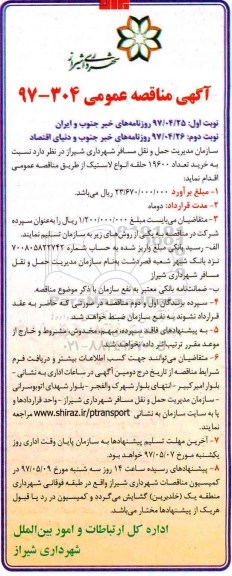 شهرداری شیراز
آگهی مناقصه عمومی ۳۰۴-۹۷
نوبت اول: ۹۷/۰۴/۲۵ روزنامه‌های خبر جنوب و ایران
نوبت دوم: ۹۷/۰۴/۲۶ روزنامه‌های خبر جنوب و دنیای اقتصاد
سازمان مدیریت حمل و نقل مسافر شهرداری شیراز در نظر دارد نسبت
به خرید تعداد ۱۹۶۰۰ حلقه انواع لاستیک از طریق مناقصه عمومی
اقدام نماید:
۱- مبلغ برآورد ۲۳/۶۷۰/۰۰۰/۰۰۰ ریال می‌باشد.
۲- مدت قرارداد: دوماه
۳- متقاضیان می‌بایست مبلغ ۱/۲۰۰/۰۰۰/۰۰۰ ریال را به‌عنوان سپرده
شرکت در مناقصه با یکی از روش‌های زیر به سازمان تسلیم نمایند.
الف- رسید بانکی مبلغ واریز شده به حساب شماره ۷۰۰۸۰۵۸۲۲۷۴۲
نزد بانک شهر شعبه قصردشت به‌نام سازمان مدیریت حمل و نقل
مسافر شهرداری شیراز
ب- ضمانتنامه بانکی معتبر به نفع سازمان با ذکر موضوع مناقصه.
۴- سپرده برندگان اول و دوم مناقصه در صورتی که حاضر به عقد
قرارداد نشوند به نفع سازمان ضبط خواهد شد.
۵- به پیشنهادهای فاقد سپرده، مبهم، مخدوش، مشروط و خارج از
موعد مقرر ترتیب اثر داده نخواهد شد.
۶- متقاضیان می‌توانند جهت کسب اطلاعات بیشتر و دریافت فرم
شرایط مناقصه از تاریخ درج دومین آگهی در ساعات اداری به نشانی -
بلوار امیرکبیر - انتهای بلوار شهرک والفجر - بلوار شهدای اتوبوسرانی
- سازمان مدیریت حمل و نقل مسافر شهرداری شیراز - واحد قراردادها و
یا به سایت سازمان به نشانی www.shiraz.ir/ptransport مراجعه
نمایند.
۷- آخرین مهلت تسلیم پیشنهادها به سازمان پایان وقت اداری روز
یکشنبه مورخ ۹۷/۰۵/۰۷ خواهد بود.
۸- پیشنهادهای رسیده ساعت ۱۴ روز سه شنبه مورخ ۹۷/۰۵/۰۹ در
کمیسیون مناقصات شهرداری شیراز واقع در طبقه فوقانی شهرداری
منطقه یک (خلدبرین) گشایش می‌گردد و کمیسیون در رد یا قبول
هریک از پیشنهادها مختار می‌باشد.
اداره کل ارتباطات و امور بین‌الملل
شهرداری شیراز